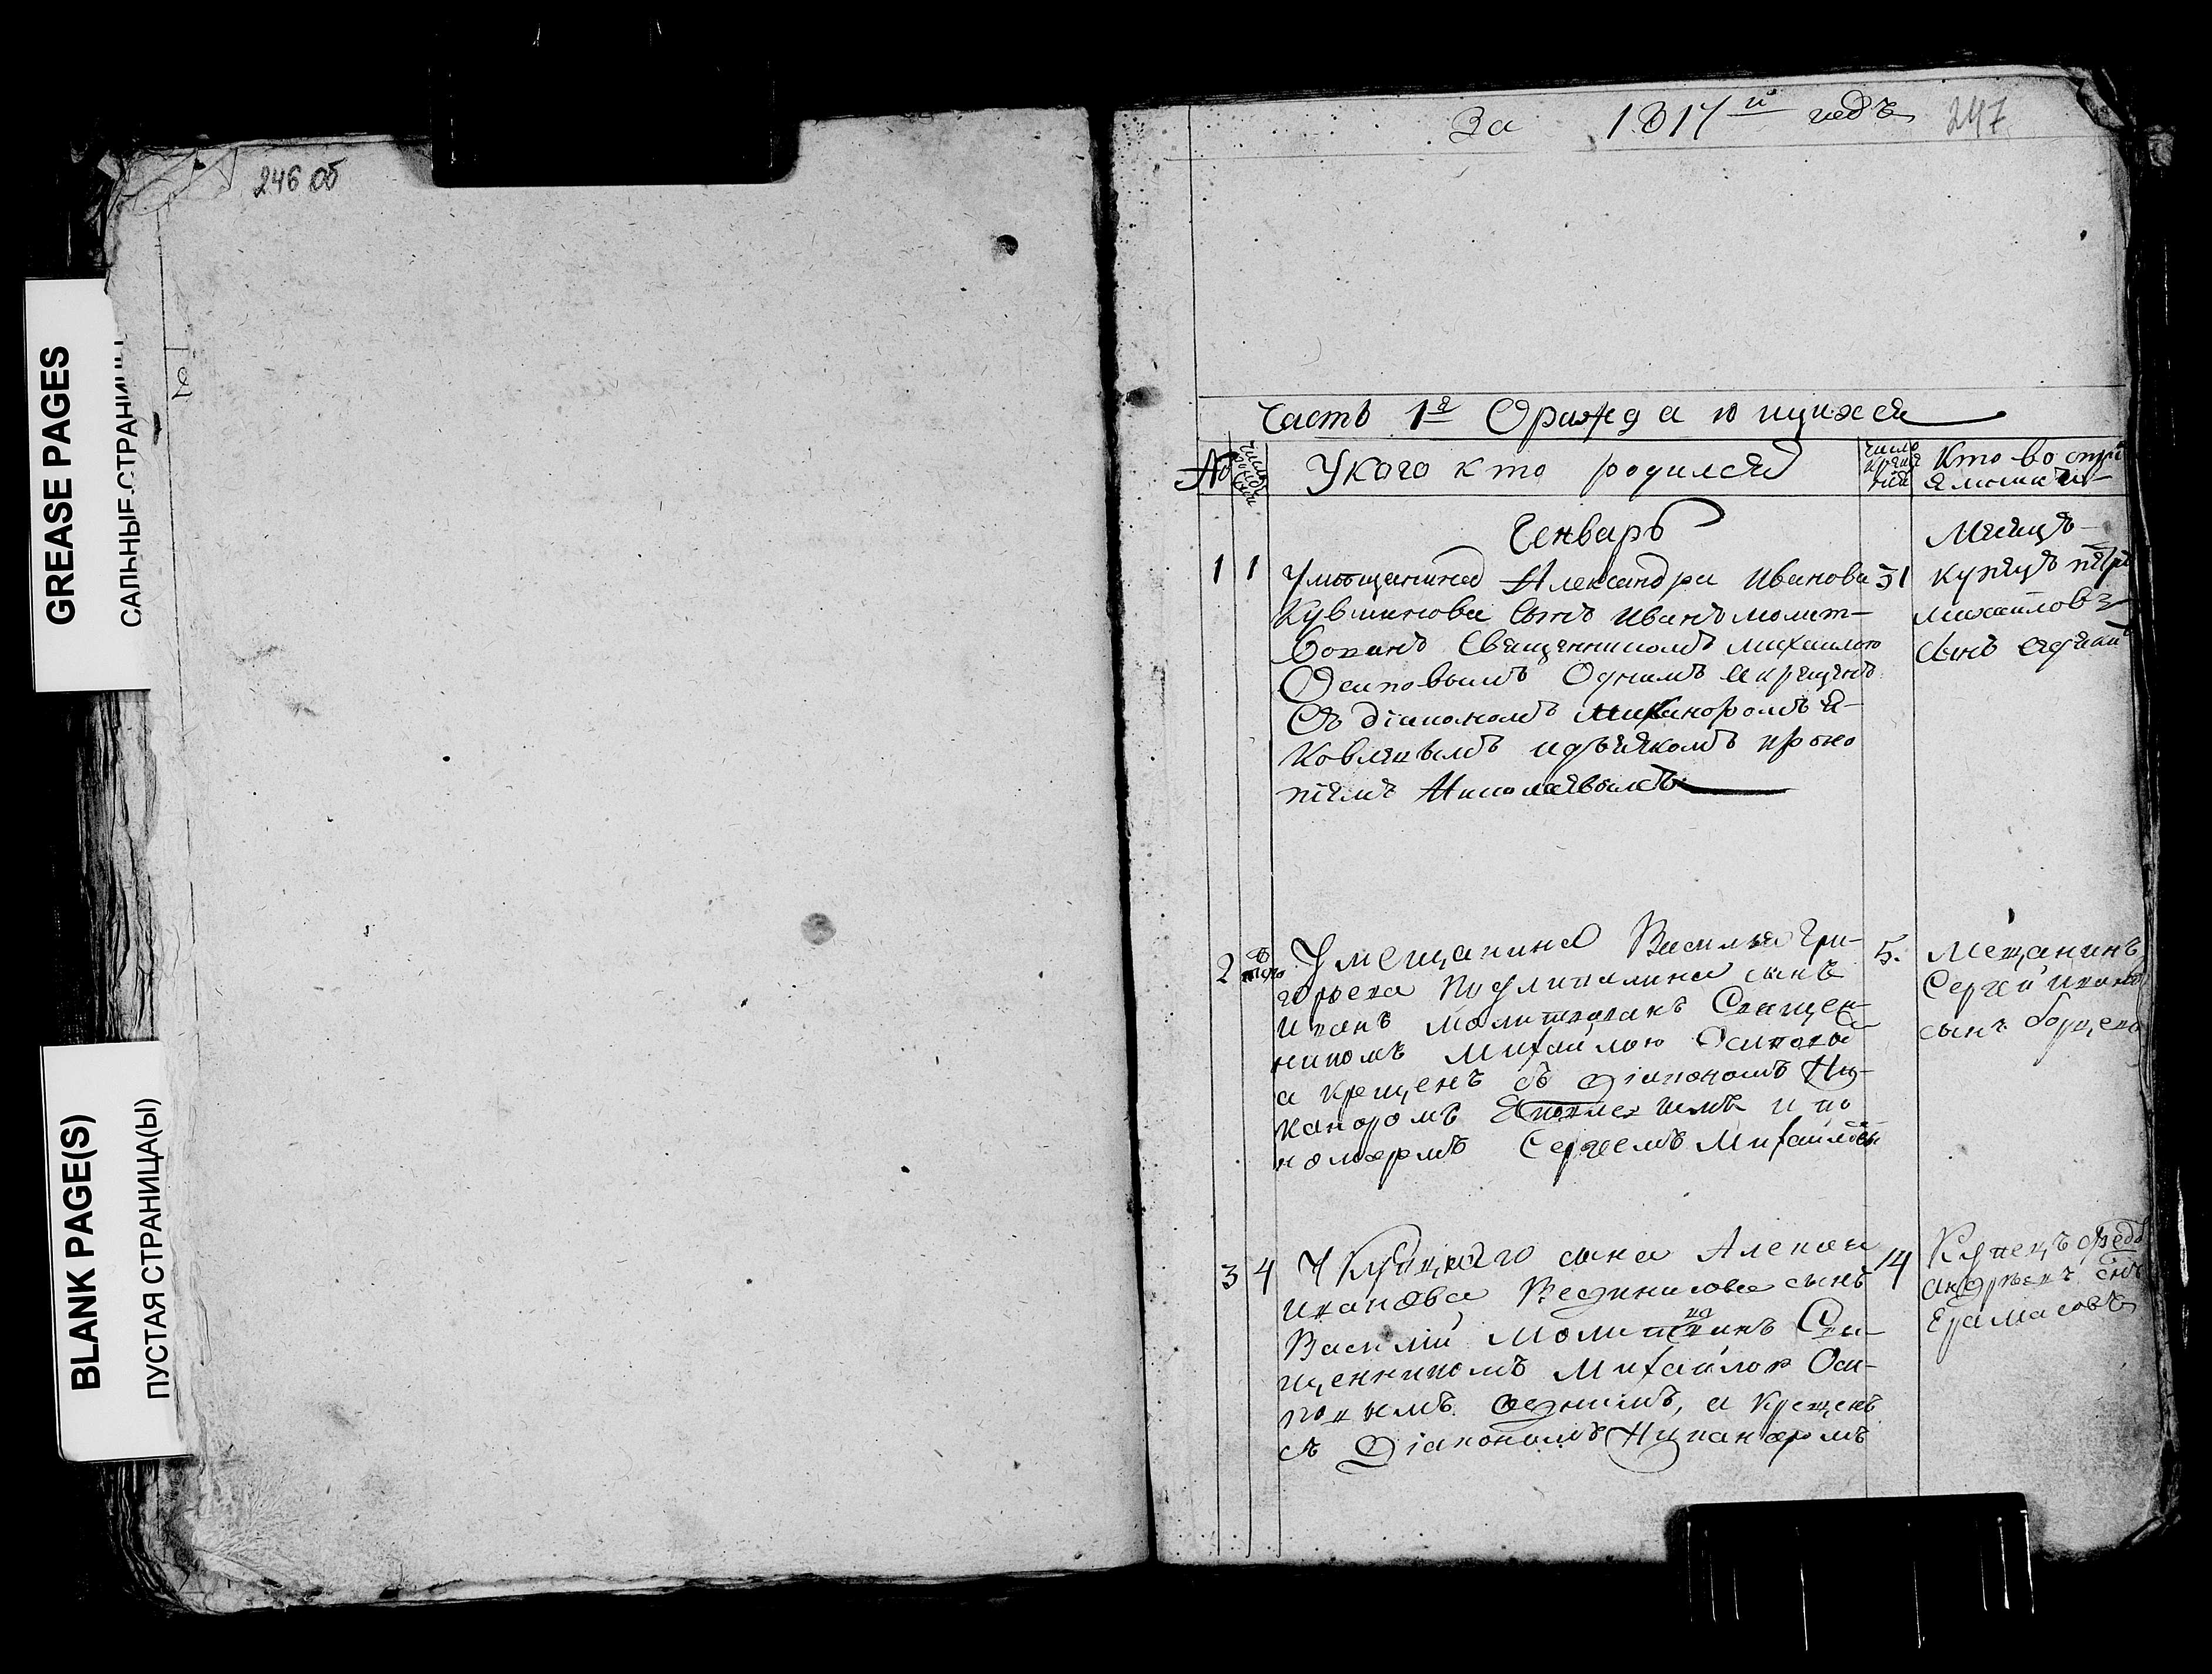 246 об
GREASE PAGES
САЛЬНЫЕ СТРАНИЦЫ
BLANK PAGE(S)
ПУСТАЯ СТРАНИЦА(Ы)
За 1817й годъ
247
Часть 1я О раждающихся
№
число рожде
У кого кто родился
число креще нія
Кто воспри
Генварь
1 1
У мещанина Александра Иванова
сынъ Иванъ молит-
вованъ Священникомъ Михаиломъ
Осиповымъ Однимъ а крещенъ
Съ діакономъ Никаноромъ Я-
ковлевымъ и дьячкомъ проко
Николаевымъ
31
купецъ
михайловъ
сынъ
2
того
У мещанина Василья Гри-
горьева сынъ
иванъ молитвованъ Священ-
никомъ Михайлою Осиповы
а крещенъ съ діакономъ Ни-
каноромъ и по
номаремъ Сергеемъ Михайловы
5.
Мещанинъ
Сергей ивано
сынъ
3 4
У Купецкаго сына Алексея
иванова сынъ
Василій молитвованъ Свя-
щенникомъ Михайлов Оси-
повымъ однимъ, а крещенъ
съ Діакономъ Никаноромъ
14
Купецъ федо
андреевъ снъ